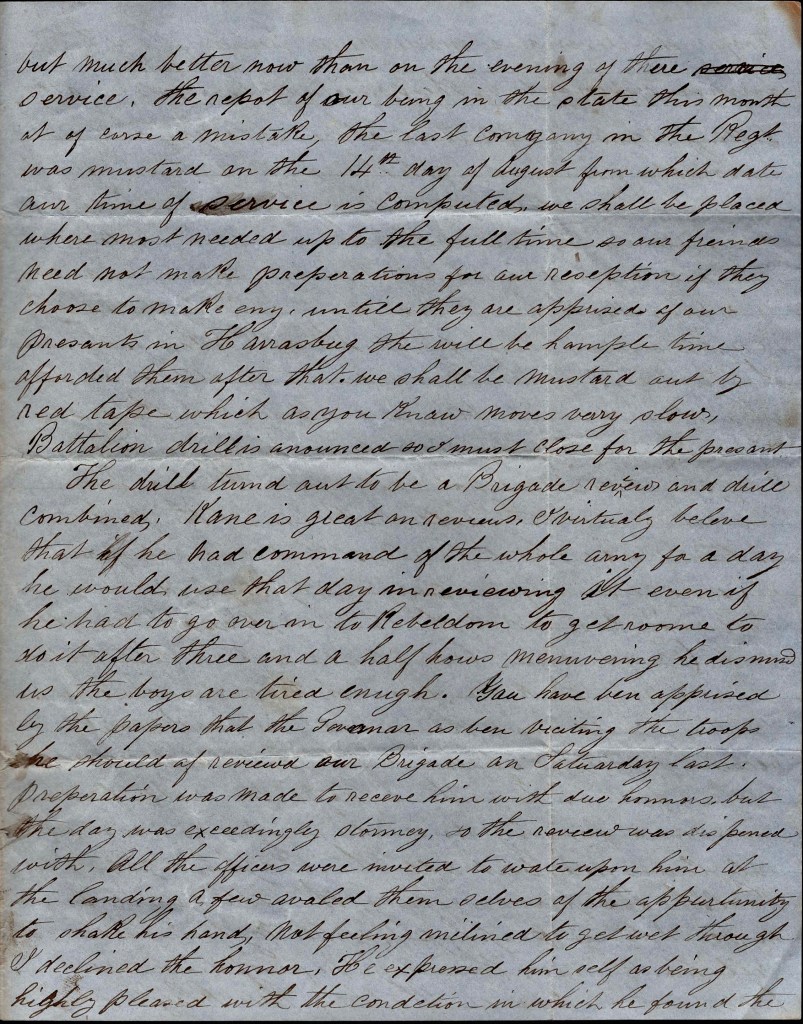 but much better now than on the evening of there service
service. the repot of our being in the state this month
at of corse a mistake, the last company in the Regt.
was mustard on the 14th day of August from which date
our time of service is computed, we shall be placed
where most needed up to the full time so our freinds
need not make preperations for our reseption if they
choose to make eny. untill they are apprised of our
presants in Harrasbug the will be hample time
afforded them after that. we shall be mustard out by
red tape which as you Know moves very slow,
Battalion drill is anounced so I must close for the presant
The drill turnd out to be a Brigade review and drill
combined. Kane is great on reviews. I virtualy beleve
that if he had command of the whole army fo a day
he would use that day in reviewing it even if
he had to go over in to Rebeldom to get roome to
do it after three and a half hows menuvering he dismisd
us the boys are tired enugh. You have ben apprised
by the papers that the Govenar as ben viciting the troops
he should af reviewd our Brigade on Satuarday last.
Preperation was made to receve him with due honnors. but
the day was exceedingly stormey, so the review was dispened
with. All the officers were invited to wate upon him at
the landing A few avaled them selves of the appurtunity
to shake his hand, Not feeling inlined to get wet through
I declined the honnor. He expressed him self as being
highly pleased with the condetion in which he found the